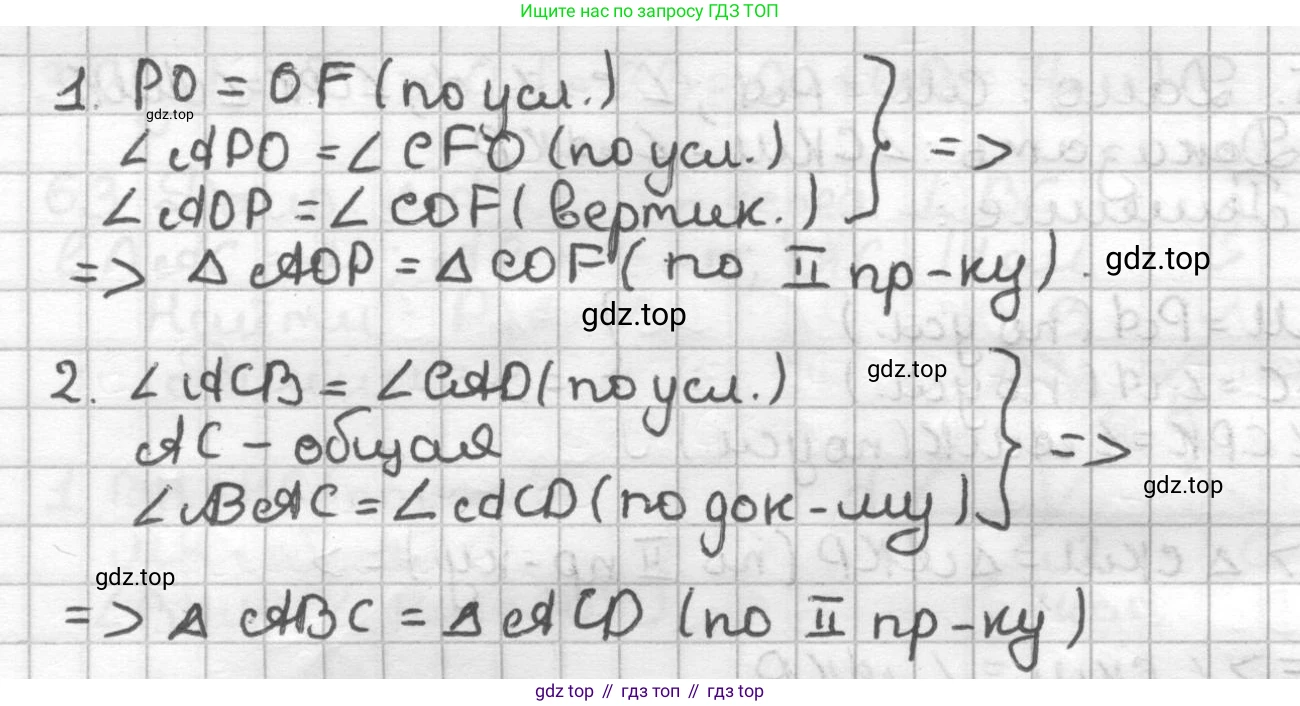 Ищите нас по запросу ГДЗ ТОП
1. PO = OF (по усл.)
gdz.top
∠APO = ∠CFO (по усл.) } =>
∠AOP = ∠COF (вертик.)
=> △AOP = △COF (по II пр-ку).
gdz.top
gdz.top
2. ∠ACB = ∠CAD (по усл.)
gdz.top
AC - общая } =>
∠BAC = ∠ACD (по док-му)
gdz.top
gdz.top
=> △ABC = △ACD (по II пр-ку)
gdz top // гдз топ // гдз top